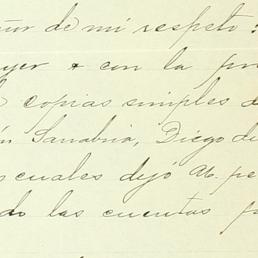 ñor de mi respeto:
yer & con la pr
copias simples d
ón Sanabria, Diego de
scuales dejó Ud. pe
do las cuentas p